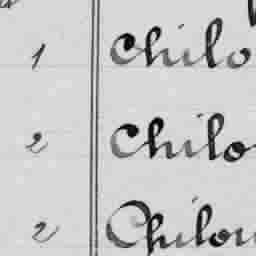 1 Chilo
2 Chilo
2 Chilou